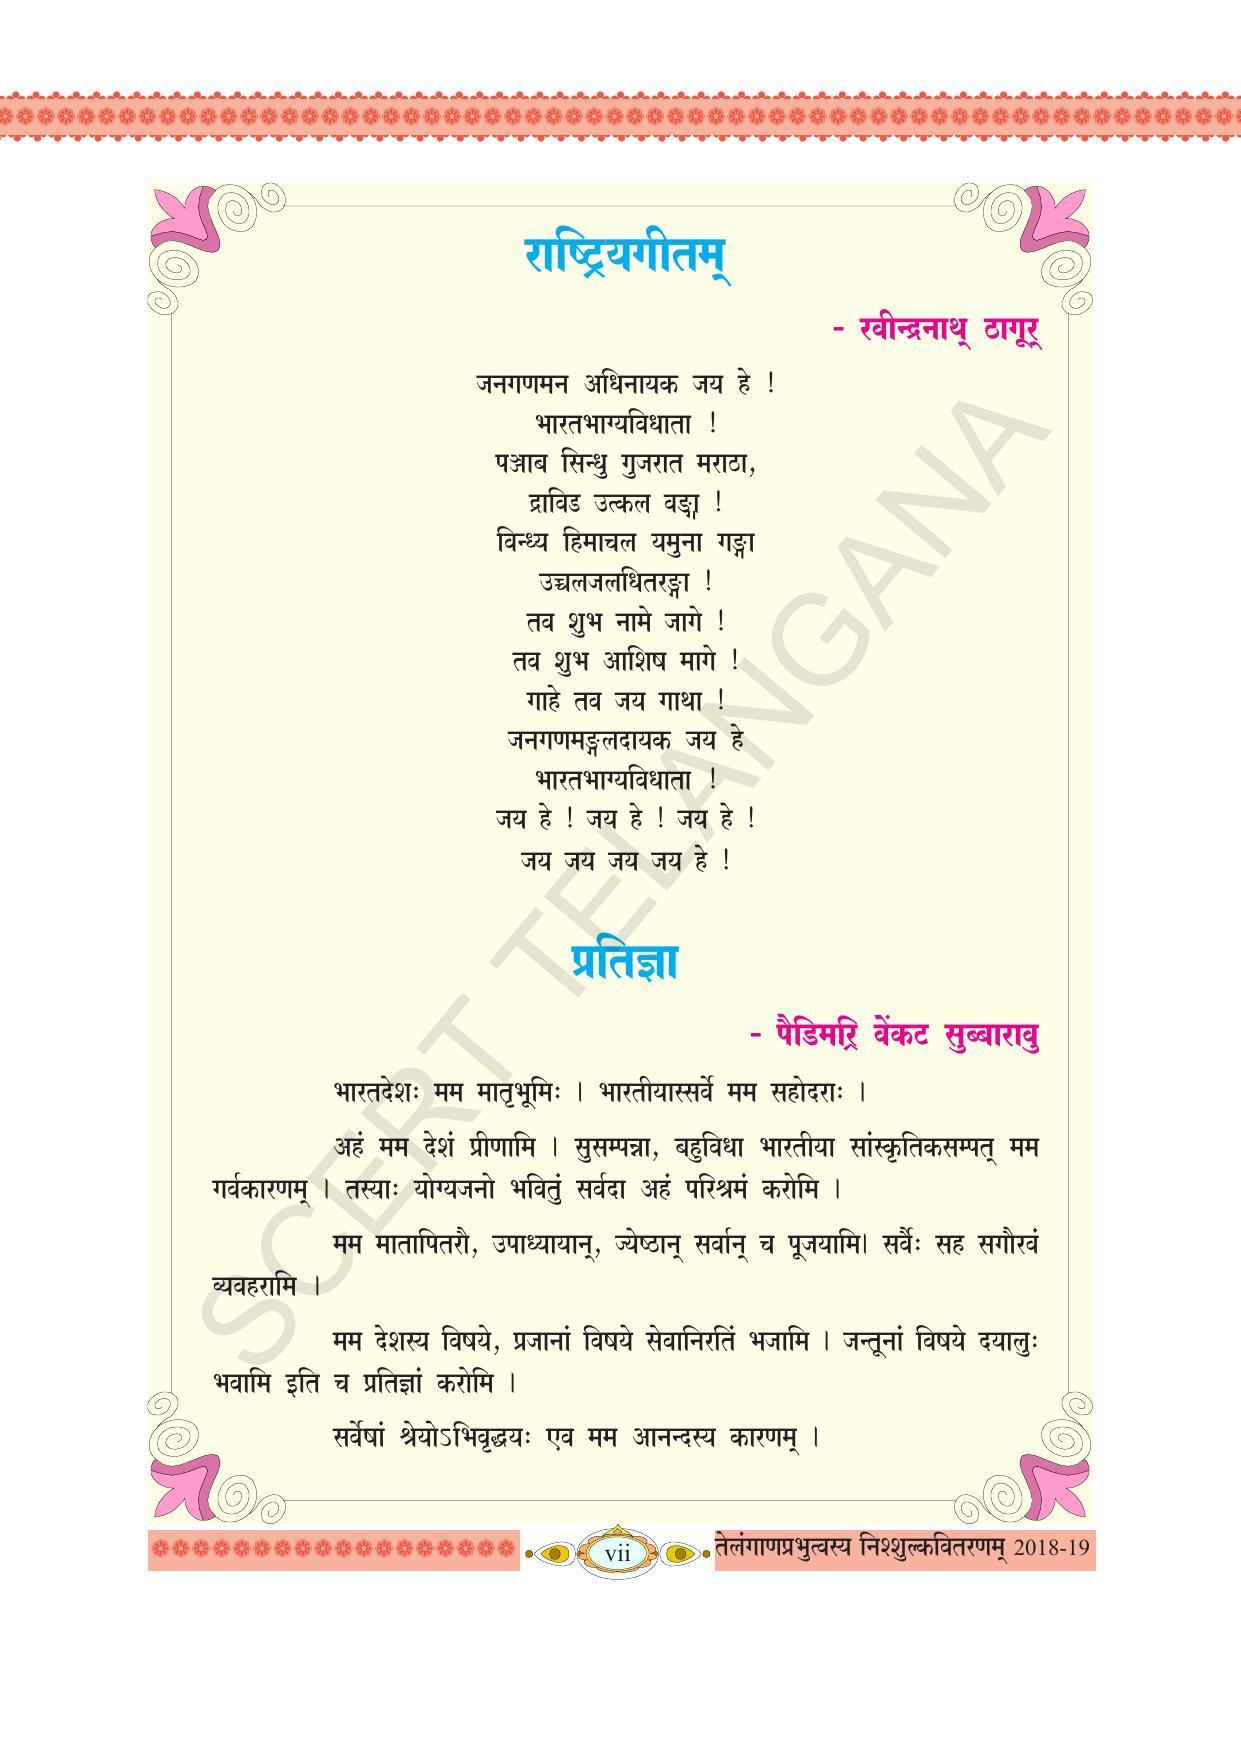 राष्ट्रियगीतम्
- रवीन्द्रनाथ् ठागूर्
जनगणमन अधिनायक जय हे !
भारतभाग्यविधाता !
पञ्जाब सिन्धु गुजरात मराठा,
द्राविड उत्कल वङ्गा !
विन्ध्य हिमाचल यमुना गङ्गा
उच्चलजलधितरङ्गा !
तव शुभ नामे जागे !
तव शुभ आशिष मागे !
गाहे तव जय गाथा !
जनगणमङ्गलदायक जय हे
भारतभाग्यविधाता !
जय हे ! जय हे ! जय हे !
जय जय जय जय हे !
प्रतिज्ञा
- पैडिमर्रि वेंकट सुब्बारावु
भारतदेशः मम मातृभूमिः । भारतीयास्सर्वे मम सहोदराः ।
अहं मम देशं प्रीणामि । सुसम्पन्ना, बहुविधा भारतीया सांस्कृतिकसम्पत् मम
गर्वकारणम् । तस्याः योग्यजनो भवितुं सर्वदा अहं परिश्रमं करोमि ।
मम मातापितरौ, उपाध्यायान्, ज्येष्ठान् सर्वान् च पूजयामि। सर्वैः सह सगौरवं
व्यवहरामि ।
मम देशस्य विषये, प्रजानां विषये सेवानिरतिं भजामि । जन्तूनां विषये दयालुः
भवामि इति च प्रतिज्ञां करोमि ।
सर्वेषां श्रेयोऽभिवृद्धयः एव मम आनन्दस्य कारणम् ।
SCERT TELANGANA
vii
तेलंगाणप्रभुत्वस्य निश्शुल्कवितरणम् 2018-19